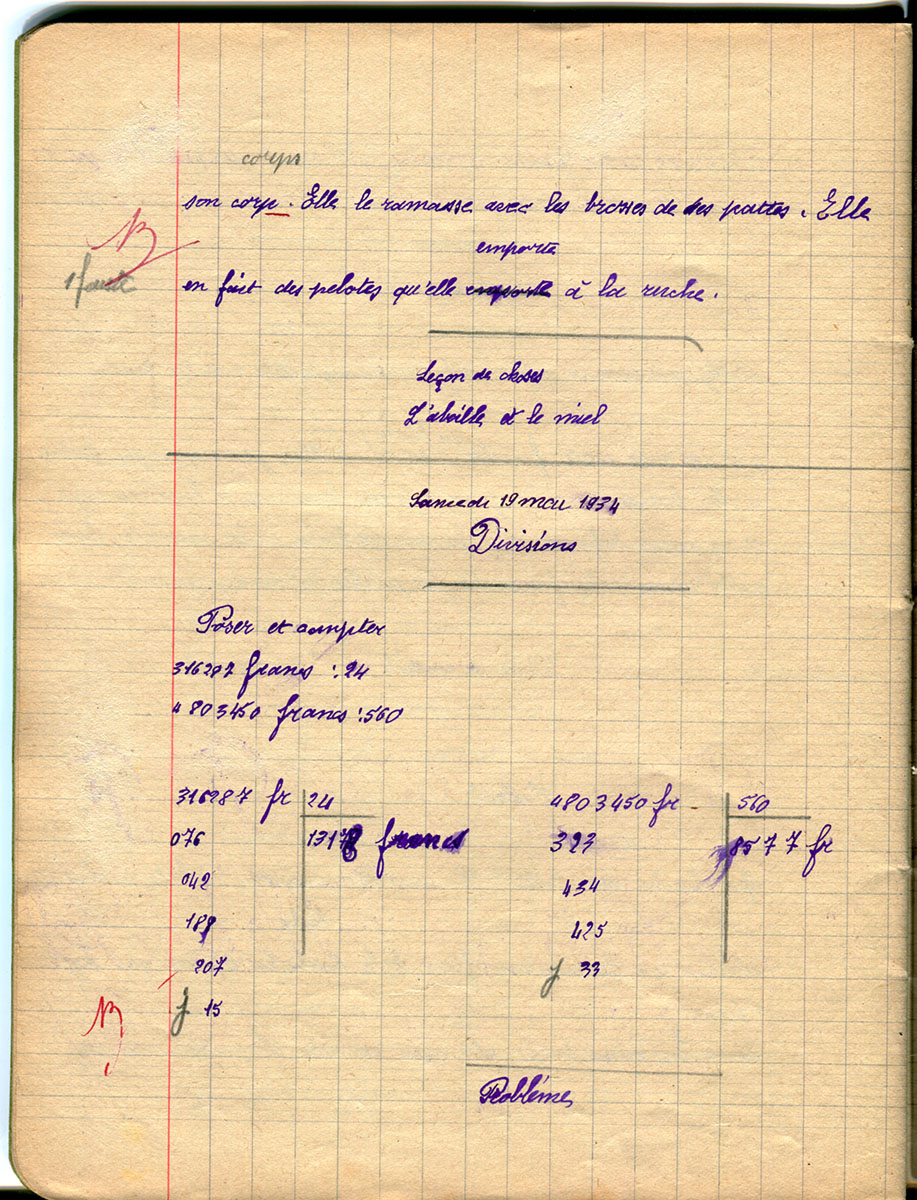 corps
son corp. Elle le ramasse avec les brosses de ses pattes. Elle
B
1 faute
emporte
en fait des pelotes qu'elle emporte à la ruche.
Leçon de choses
L'abeille et le miel
Samedi 19 mai 1934
Divisions
Poser et compter
316287 francs : 24
4803450 francs : 560
316287 fr 24
4803450 fr 560
076 13178 francs
323 8577 fr
042
434
189
425
207
j 33
B
j 15
Problème